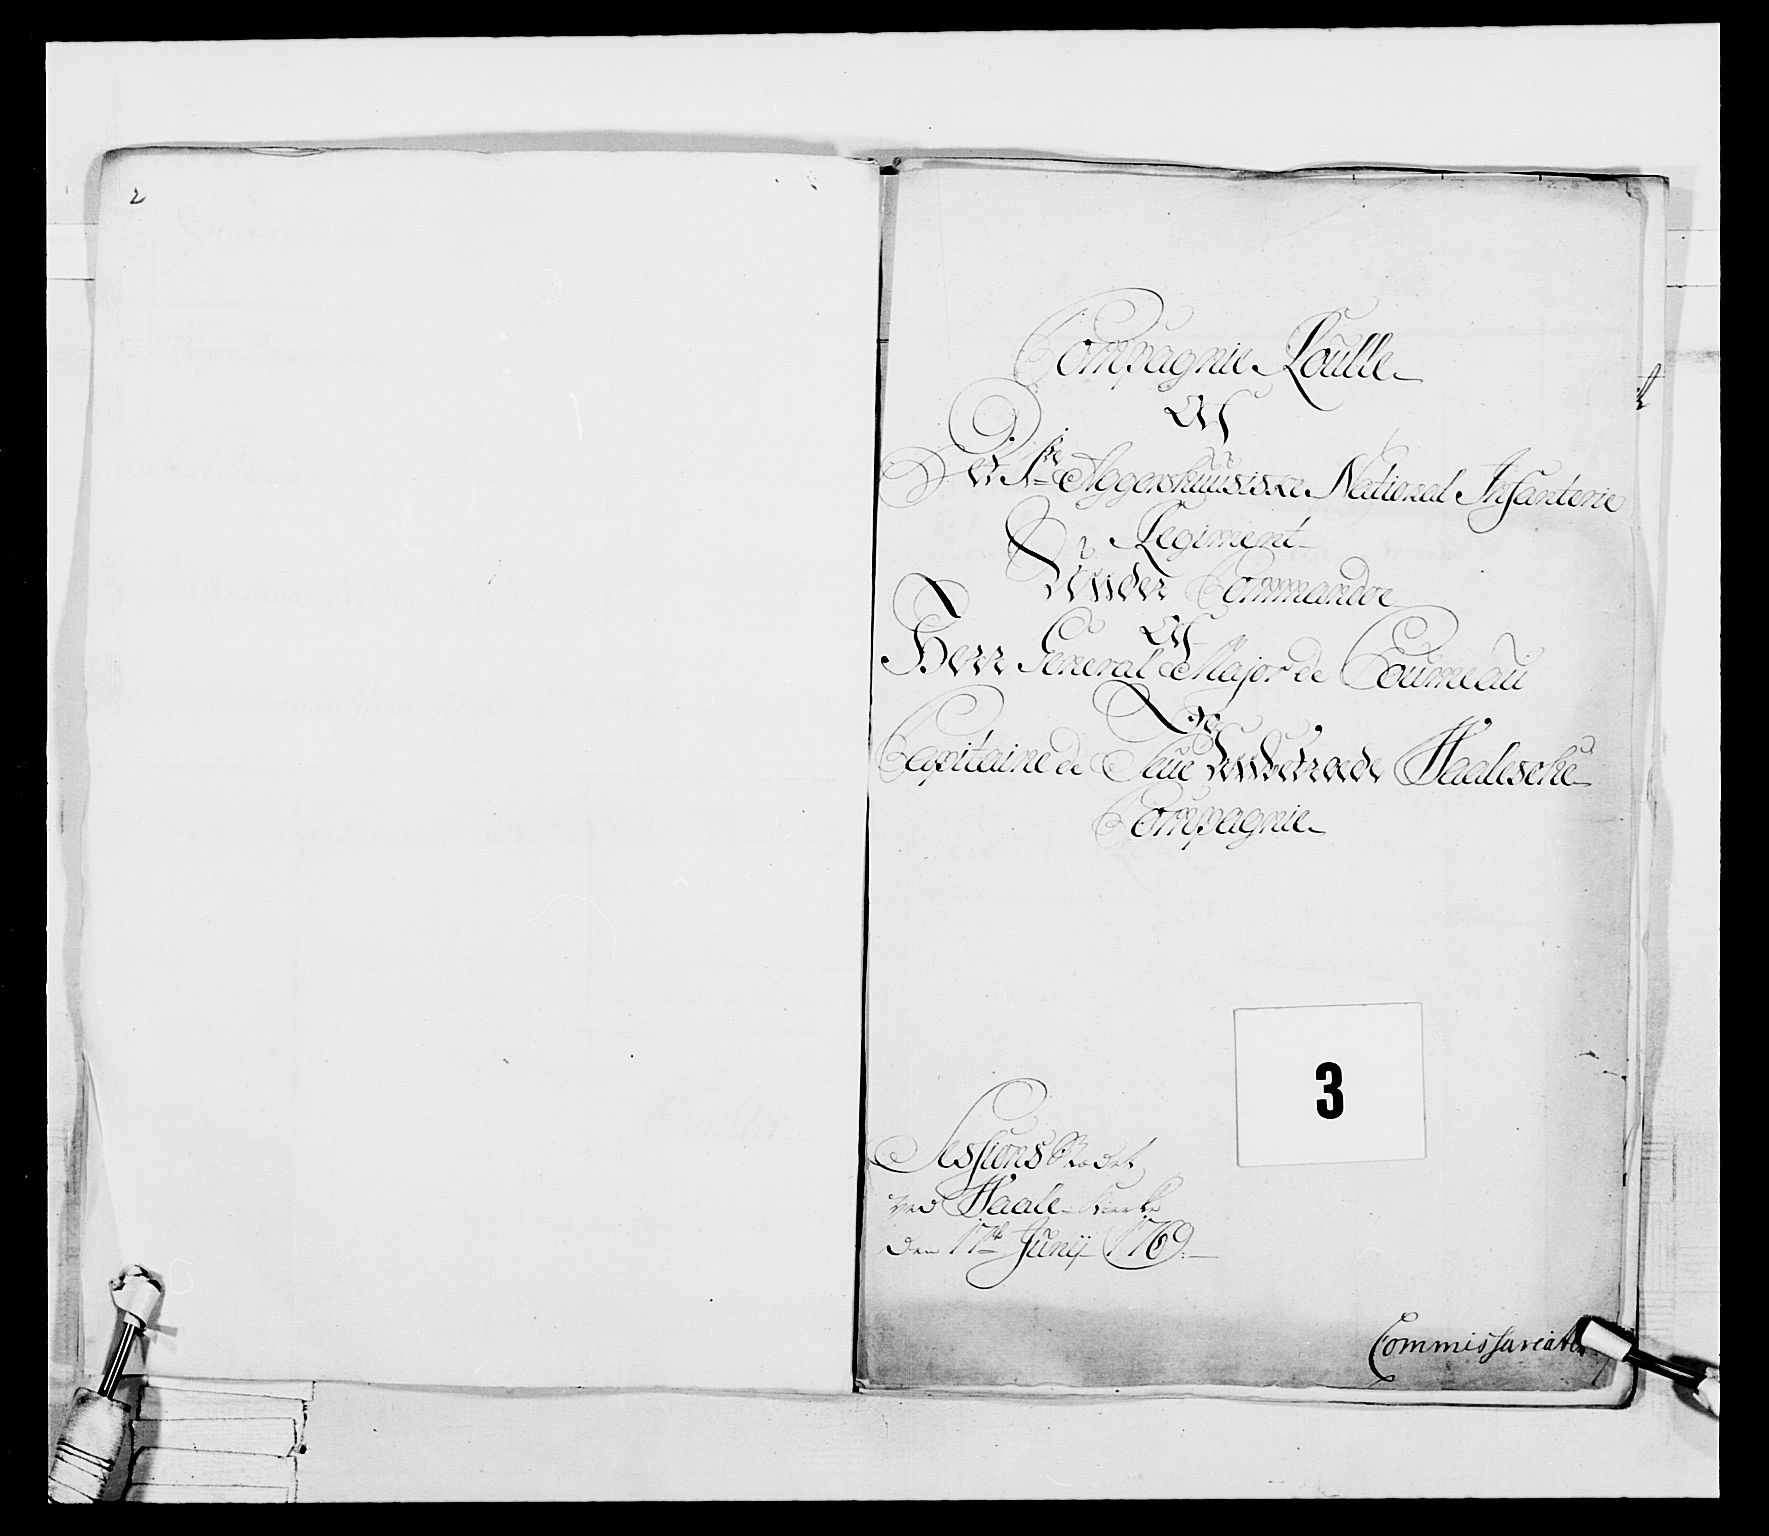 2
Compagnie Roulle
Af
Det 1ste Aggershuusiske National Infanterie
Regiment
Under Commando
Af
Herr General Major de Coumeau
Og
Capitaine de Seue Underhavende Waalerske
Compagnie
3
Sessions Stædet
ved Waale Kierke
den 17de Junij 1769.
Commissariatet